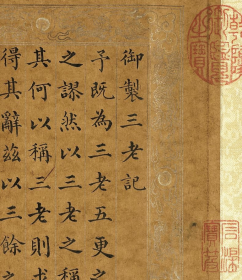 御製三老記
予既為三老五更之
之謬然以三老之稱
其何以稱三老則求
得其辭茲以三餘之